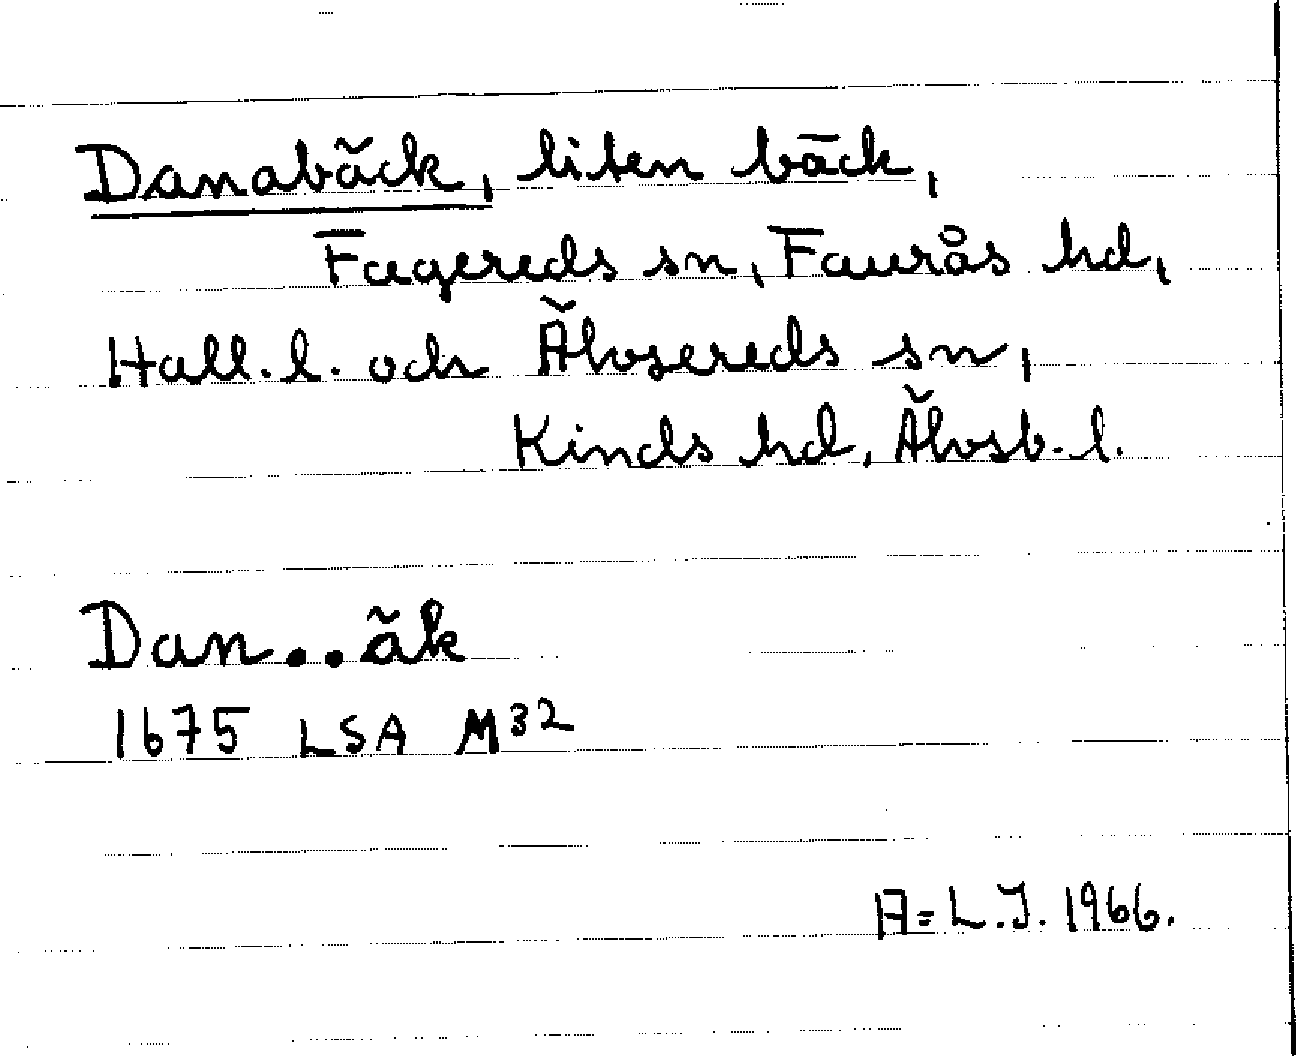 Danabäck, liten bäck,
Fagereds sn, Faurås hd,
Hall.l. och Älvsereds sn,
Kinds hd, Älvsb.l.
Dan..äk
1675 LSA M32
A=L.J. 1966.